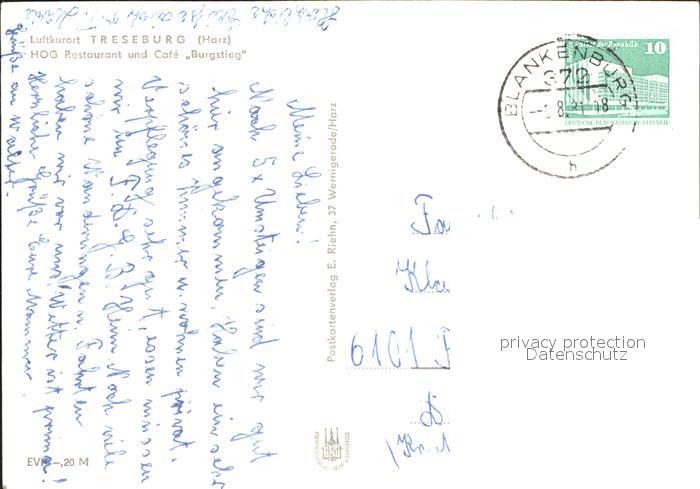 Luftkurort TRESEBURG (Harz)
HOG Restaurant und Café „Burgstieg"
Meine Lieben!
Nach 5x Umsteigen sind wir gut
hier angekommen, haben ein sehr
schönes Zimmer u. wohnen privat.
Verpflegung sehr gut, essen müssen
wir im F.D.G.B. Heim. Noch viele
schöne Wanderungen u. Fahrten
haben wir vor uns. Wetter ist prima!
Herzliche Grüße Eure
Grüße an Walter.
Herzliche Grüße auch
EVP –,20 M
Postkartenverlag E. Riehn, 37 Wernigerode/Harz
BLANKENBURG
372
h
Palast der Republik
10
DEUTSCHE DEMOKRATISCHE REPUBLIK
Fa
6101
privacy protection
Datenschutz